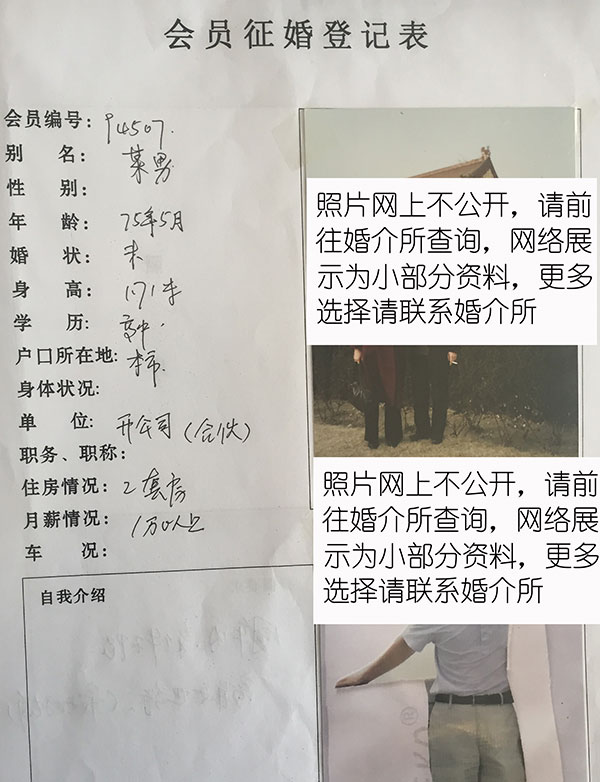 会员征婚登记表
会员编号：94507.
别 名：某男
性 别：
年 龄：75年5月
婚 状：未
身 高：1.71米
学 历：高中.
户口所在地：本市
身体状况：
单 位：开公司（合伙）
职务、职称：
住房情况：2套房
月薪情况：1万以上
车 况：
自我介绍
照片网上不公开，请前
往婚介所查询，网络展
示为小部分资料，更多
选择请联系婚介所
照片网上不公开，请前
往婚介所查询，网络展
示为小部分资料，更多
选择请联系婚介所